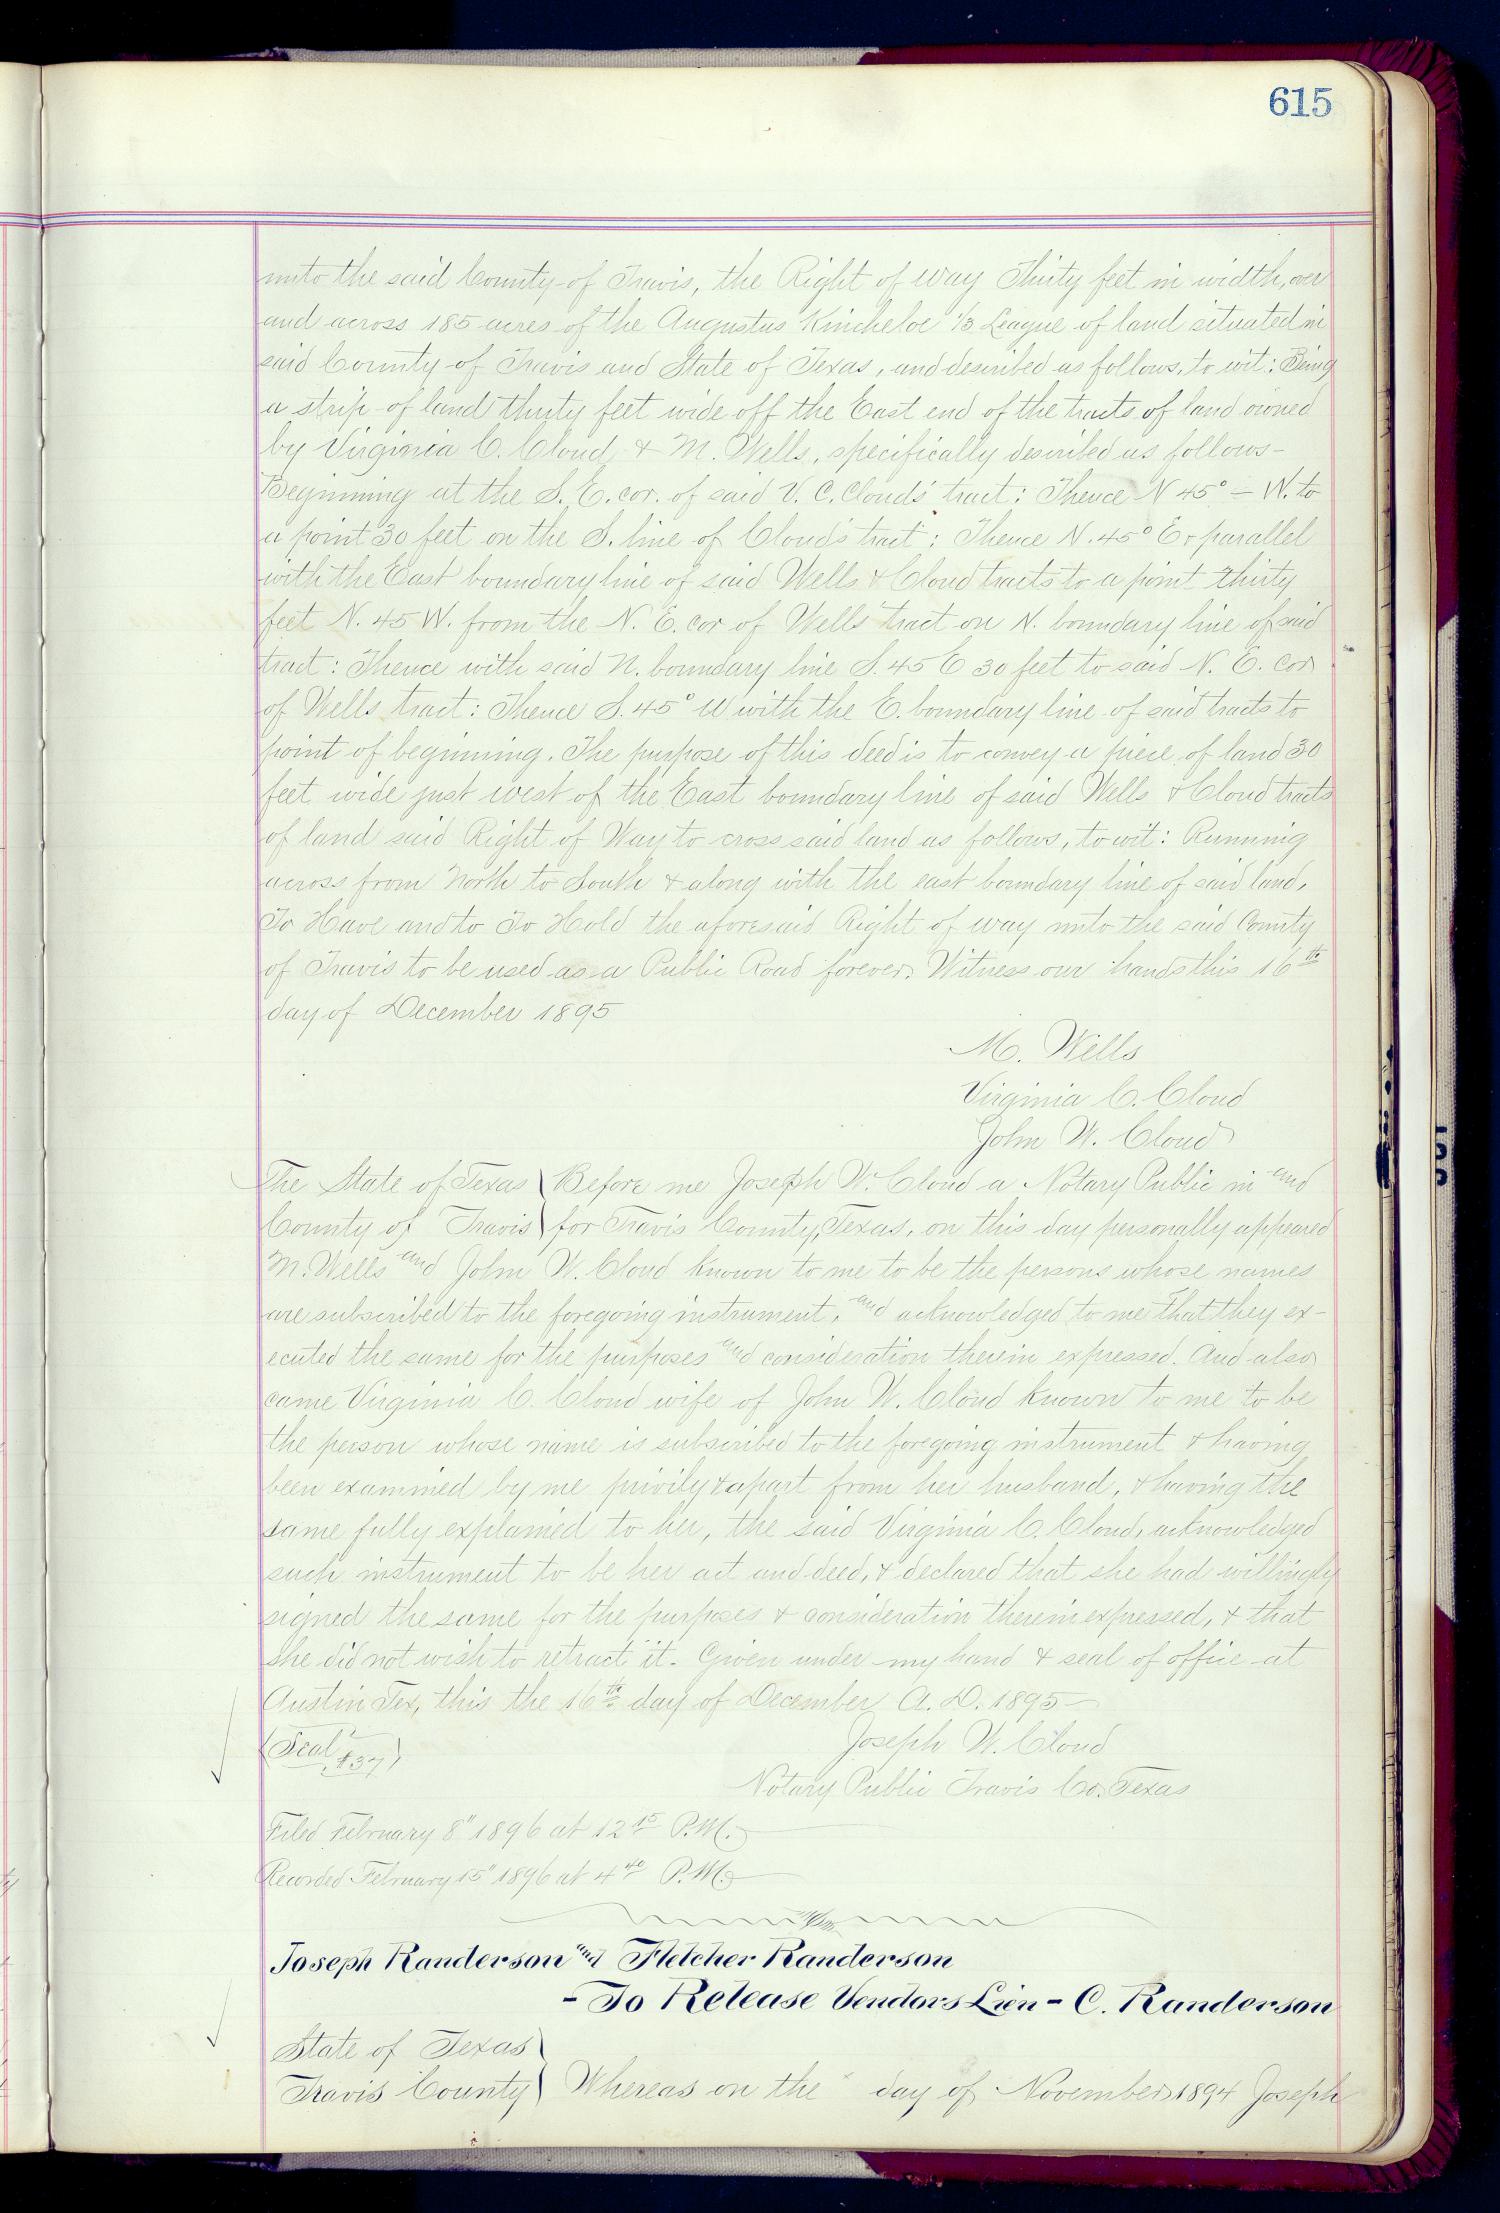 615
unto the said County of Travis, the Right of way Thirty feet in width, over
and across 185 acres of the Augustus Kincheloe 1/3 League of land situated in
said County of Travis and State of Texas, and described as follows, to wit: Being
a strip of land thirty feet wide off the East end of the tracts of land owned
by Virginia C. Cloud & M. Wells, specifically described as follows-
Beginning at the S. E. cor. of said V. C. Clouds' tract: Thence N 45° - W. to
a point 30 feet on the S. line of Cloud's tract: Thence N. 45° E & parallel
with the East boundary line of said Wells & Cloud tracts to a point thirty
feet N. 45 W. from the N. E. cor of Wells tract on N. boundary line of said
tract: Thence with said N. boundary line S. 45 E 30 feet to said N. E. cor
of Wells tract: Thence S. 45° W with the E. boundary line of said tracts to
point of beginning. The purpose of this deed is to convey a piece of land 30
feet wide just west of the East boundary line of said Wells & Cloud tracts
of land said Right of Way to cross said land as follows, to wit: Running
across from North to South & along with the east boundary line of said land,
To Have and to To Hold the aforesaid Right of way unto the said County
of Travis to be used as a Public Road forever. Witness our hands this 16th
day of December 1895
M. Wells
Virginia C. Cloud
John W. Cloud
The State of Texas } Before me Joseph W. Cloud a Notary Public in and
County of Travis } for Travis County, Texas, on this day personally appeared
M. Wells and John W. Cloud known to me to be the persons whose names
are subscribed to the foregoing instrument, and acknowledged to me that they ex-
ecuted the same for the purposes and consideration therein expressed. And also
came Virginia C. Cloud wife of John W. Cloud known to me to be
the person whose name is subscribed to the foregoing instrument & having
been examined by me privily & apart from her husband, & having the
same fully explained to her, the said Virginia C. Cloud, acknowledged
such instrument to be her act and deed, & declared that she had willingly
signed the same for the purposes & consideration therein expressed, & that
she did not wish to retract it. Given under my hand & seal of office at
Austin Tex, this the 16th day of December A. D. 1895-
(Seal #37) Joseph W. Cloud
Notary Public Travis Co. Texas
Filed February 8" 1896 at 12 15 P.M.
Recorded February 15" 1896 at 4 40 P.M.
Joseph Randerson and Fletcher Randerson
- To Release Vendors Lien - C. Randerson
State of Texas }
Travis County } Whereas on the " day of November 1894 Joseph